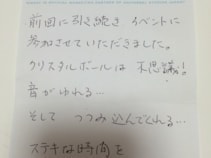 前回に引き続き イベントに
参加させていただきました。
クリスタルボールは 不思議!。
音がゆれる…
そして つつみ込んでくれる…
ステキな時間を